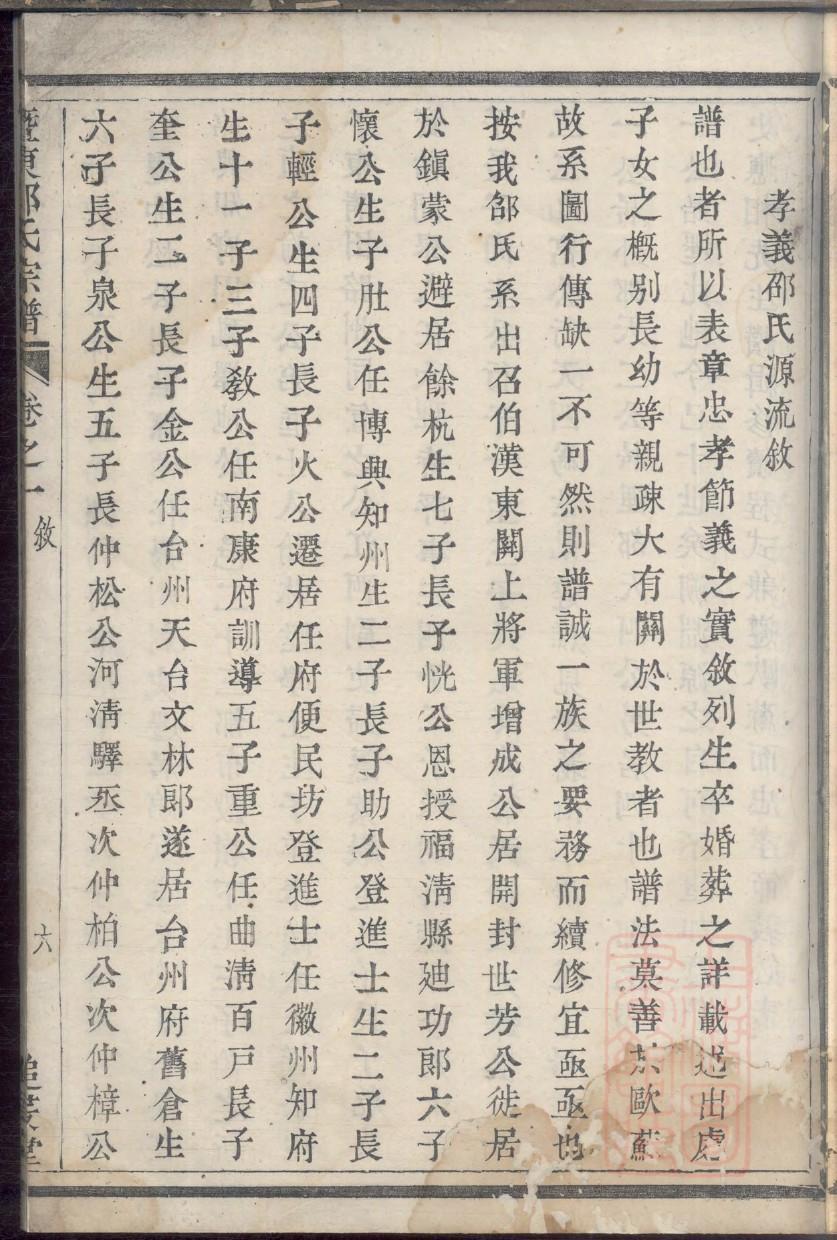 孝義邵氏源流敘
譜也者所以表章忠孝節義之實敘列生卒婚葬之詳載述出處
子女之槪别長幼等親疎大有關於世教者也譜法莫善於歐蘇
故系圖行傳缺一不可然則譜誠一族之要務而續修宜亟亟也
按我邵氏系出召伯漢東關上將軍增成公居開封世芳公徙居
於鎮蒙公避居餘杭生七子長子恍公恩授福淸縣廸功郎六子
懷公生子肚公任博興知州生二子長子助公登進士生二子長
子輕公生四子長子火公遷居任府便民坊登進士任徽州知府
生十一子三子敎公任南康府訓導五子重公任曲淸百戸長子
奎公生二子長子金公任台州天台文林郎遂居台州府舊倉生
六子長子泉公生五子長仲松公河淸驛丞次仲柏公次仲樟公
暨東邵氏宗譜 卷之一 敘 六 追遠堂